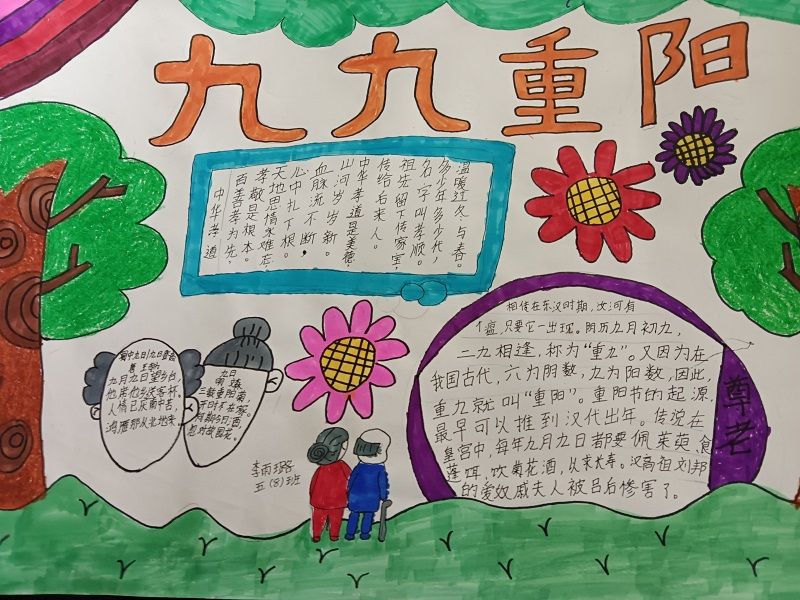 九九重阳
中华孝道
百善孝为先，
孝敬是根本。
天地恩情永难忘，
心中扎下根。
血脉流不断，
山河岁岁新。
中华孝道是美德，
传给后来人。
祖先留下传家宝，
名字叫孝顺。
多少年多少代，
温暖过冬与春。
蜀中九日/九日登高
唐 王勃
九月九日望乡台，
他席他乡送客杯。
人情已厌南中苦，
鸿雁那从北地来
九日
明
三载重阳菊，
开时不在家。
何期今日酒，
忽对故园花。
李雨璐
五(8)班
相传在东汉时期，汝河有
1瘟，只要它一出现。阴历九月初九，
二九相逢，称为“重九”。又因为在
我国古代，六为阴数，九为阳数，因此，
重九就叫“重阳”。重阳节的起源，
最早可以推到汉代出年。传说在
皇宫中，每年九月九日都要佩茱萸，食
蓬饵，饮菊花酒，以求长寿。汉高祖刘邦
的爱妃戚夫人被吕后惨害了。
尊老